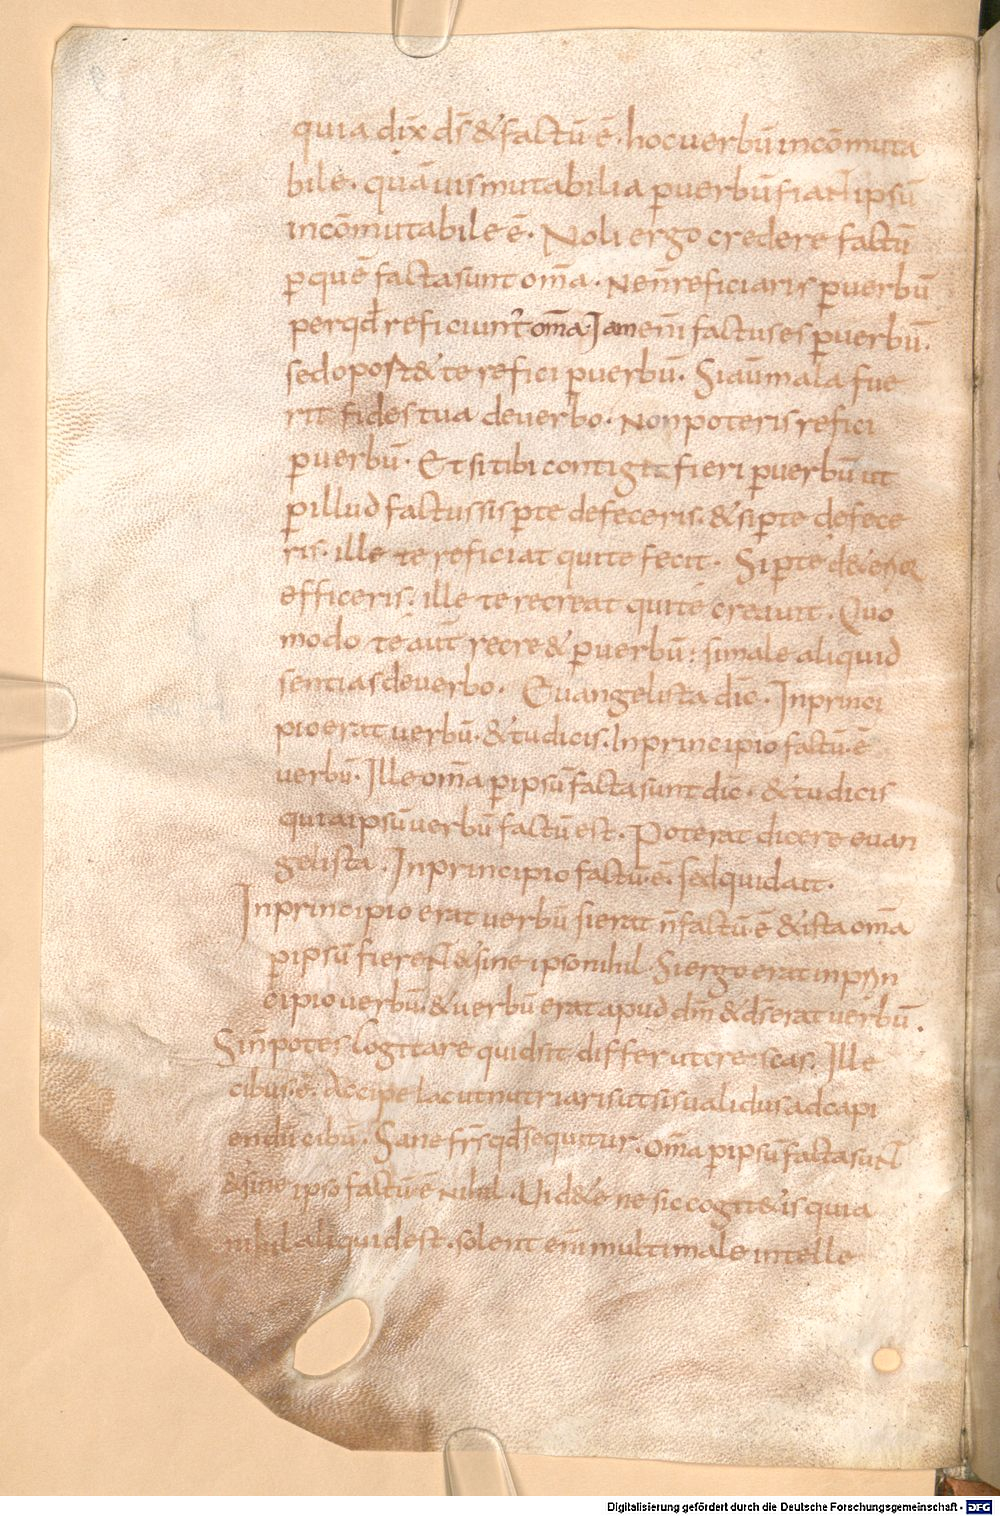 quia dix ds̄ & factū ē · hoc uerbū incōmuta
bile · quāuis mutabilia ꝑ uerbū fiant ipsū
incōmutabile ē · Noli ergo credere factū
ꝑ quē facta sunt om̄a · Ne n̄ reficiaris ꝑ uerbū
per qd̄ reficiunt̄ om̄a · Jam eni̅ factus es ꝑ uerbū ·
sed oport& te refici ꝑ uerbū · Si aūt mala fue
rit fides tua de uerbo · Non poteris refici
ꝑ uerbū · Et si tibi contigit fieri ꝑ uerbū ut
ꝑ illud factus sis ꝑ te defeceris · & si ꝑ te defece
ris · ille te reficiat qui te fecit · Si ꝑ te
efficeris · ille te recreat qui te creauit · Quo
modo te aūt recre& ꝑ uerbū : si male aliquid
sentias de uerbo · Euangelista dic̄ · In princi
pio erat uerbū · & tu dicis · In principio factū ē
uerbū · Ille om̄a ꝑ ipsū facta sunt dic̄ · & tu dicis
quia ipsū uerbū factū est · Poterat dicere euan
gelista · In principio factū ē · sed quid ait ·
In principio erat uerbū si erat n̄ factū ē & ista om̄a
ꝑ ipsū fierent & sine ipso nihil · Si ergo erat in prin
cipio uerbū · & uerbū erat apud dm̄ & ds̄ erat uerbū ·
Si n̄ potes cogitare quid sit differ ut crescas · Ille
cibus ē · Accipe lac ut nutriaris ut sis ualidus ad capi
endū cibū · Sane frs̄ qd̄ sequitur · om̄a ꝑ ipsū facta sunt
& sine ipso factū ē nihil · Uid&e ne sic cogit&is quia
nihil aliquid est · solent eni̅ multi male intelle
Digitalisierung gefördert durch die Deutsche Forschungsgemeinschaft - DFG